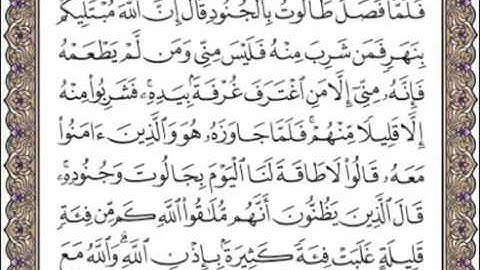 فَلَمَّا فَصَلَ طَالُوتُ بِالْجُنُودِ قَالَ إِنَّ اللَّهَ مُبْتَلِيكُم
بِنَهَرٍ فَمَن شَرِبَ مِنْهُ فَلَيْسَ مِنِّي وَمَن لَّمْ يَطْعَمْهُ
فَإِنَّهُۥ مِنِّيٓ إِلَّا مَنِ اغْتَرَفَ غُرْفَةًۢ بِيَدِهِۦۚ فَشَرِبُوا۟ مِنْهُ
إِلَّا قَلِيلًا مِّنْهُمْۚ فَلَمَّا جَاوَزَهُۥ هُوَ وَالَّذِينَ ءَامَنُوا۟
مَعَهُۥ قَالُوا۟ لَا طَاقَةَ لَنَا الْيَوْمَ بِجَالُوتَ وَجُنُودِهِۦۚ
قَالَ الَّذِينَ يَظُنُّونَ أَنَّهُم مُّلَٰقُوا۟ اللَّهِ كَم مِّن فِئَةٍ
قَلِيلَةٍ غَلَبَتْ فِئَةً كَثِيرَةًۢ بِإِذْنِ اللَّهِۗ وَاللَّهُ مَعَ